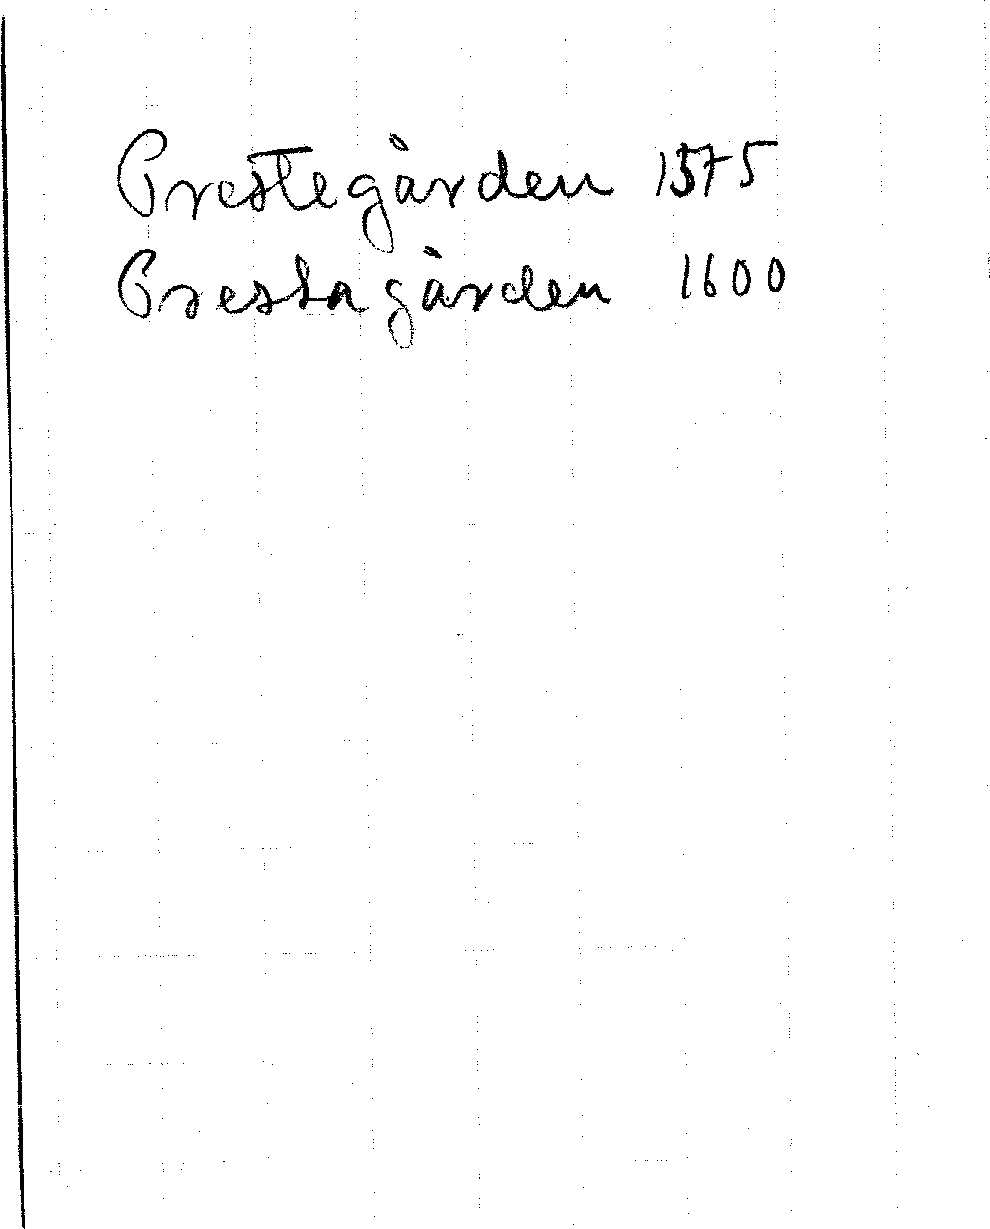 Prestegården 1575
Prestagården 1600